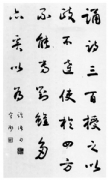 誦詩三百授之以
政不達使於四方
不能專對雖多
亦奚以為